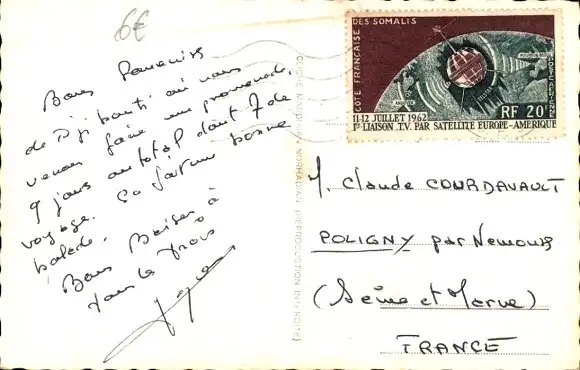 6€
Bons Souvenirs
de Djibouti où nous
venons faire une promenade.
9 jours au total dont 7 de
voyage. Ça fait une bonne
balade.
Bons Baisers à
tous les trois
CÔTE FRANÇAISE
DES SOMALIS
POSTE AÉRIENNE
RF 20F
11-12 JUILLET 1962
1re LIAISON T.V. PAR SATELLITE EUROPE-AMÉRIQUE
M. Claude COURDAVAULT
POLIGNY par Nemours
(Seine et Marne)
FRANCE